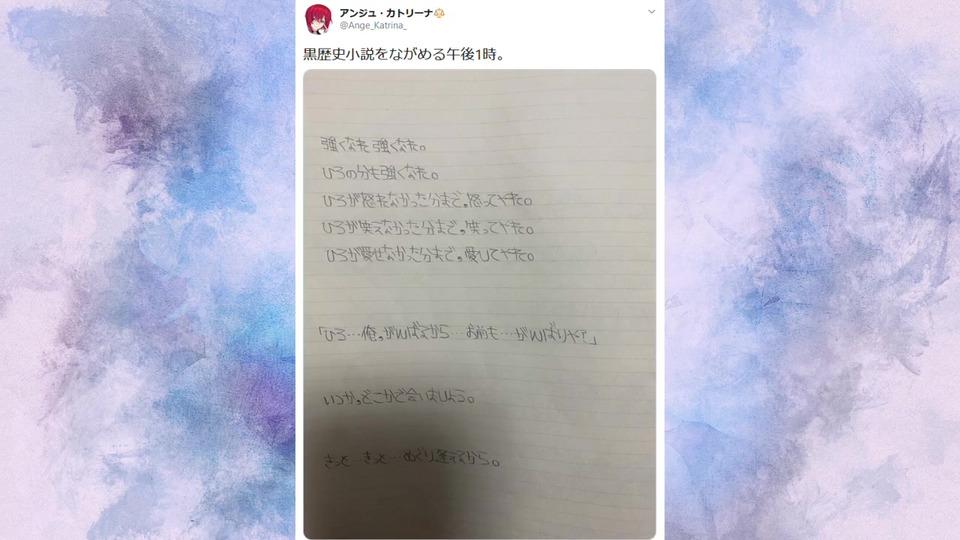 アンジュ・カトリーナ⚖
@Ange_Katrina_
黒歴史小説をながめる午後1時。
強くなれ 強くなれ。
ひろの分も強くなれ。
ひろが怒れなかった分まで、怒ってやれ。
ひろが笑えなかった分まで、笑ってやれ。
ひろが愛せなかった分まで、愛してやれ。
「ひろ…俺、がんばるから…お前も…がんばりや?」
いつか、どこかで合いましょう。
きっと…きっと…めぐり逢えるから。